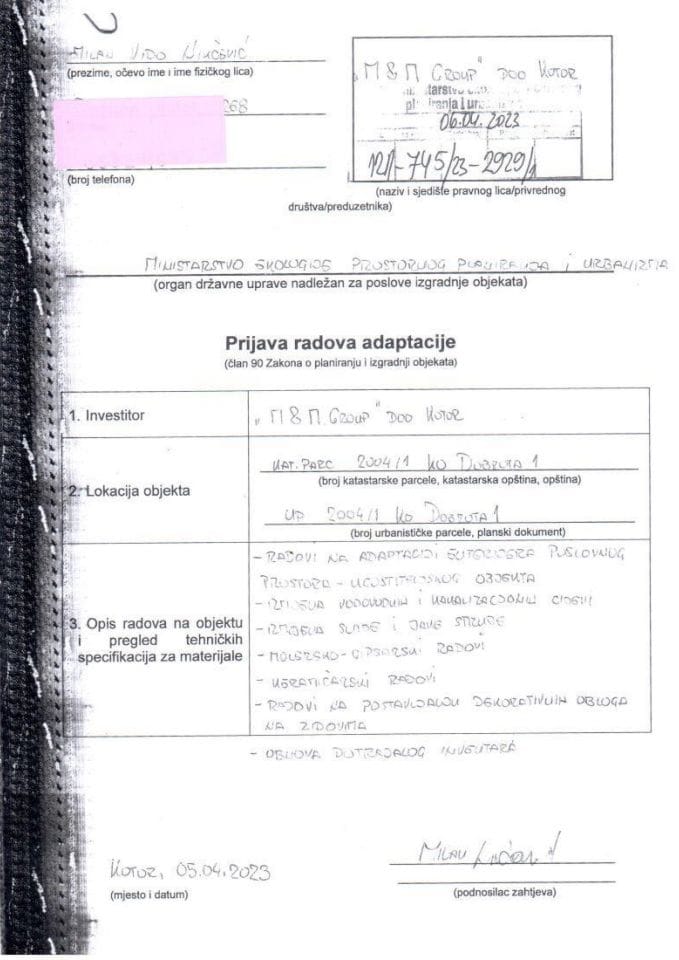 MILAN VIDO
(prezime, očevo ime i ime fizičkog lica)
268
(broj telefona)
"M&M GROUP" DOO KOTOR
06.04.2023
-745/23-2929/1
(naziv i sjedište pravnog lica/privrednog
društva/preduzetnika)
MINISTARSTVO EKOLOGIJE PROSTORNOG PLANIRANJA I URBANIZMA
(organ državne uprave nadležan za poslove izgradnje objekata)
Prijava radova adaptacije
(član 90 Zakona o planiranju i izgradnji objekata)
1. Investitor
"M&M GROUP" DOO KOTOR
2. Lokacija objekta
KAT. PARC 2004/1 KO DOBROTA 1
(broj katastarske parcele, katastarska opština, opština)
UP 2004/1 KO DOBROTA 1
(broj urbanističke parcele, planski dokument)
3. Opis radova na objektu
i pregled tehničkih
specifikacija za materijale
- RADOVI NA ADAPTACIJI ENTERIJERA POSLOVNOG
PROSTORA - UGOSTITELJSKOG OBJEKTA
- IZMJENA VODOVODNIH I KANALIZACIONIH CIJEVI
- IZMJENA SLABE I JAKE STRUJE
- MOLERSKO-GIPSARSKI RADOVI
- KERAMIČARSKI RADOVI
- RADOVI NA POSTAVLJANJU DEKORATIVNIH OBLOGA
NA ZIDOVIMA
- OBNOVA DOTRAJALOG INVENTARA
KOTOR, 05.04.2023
(mjesto i datum)
MILAN
(podnosilac zahtjeva)